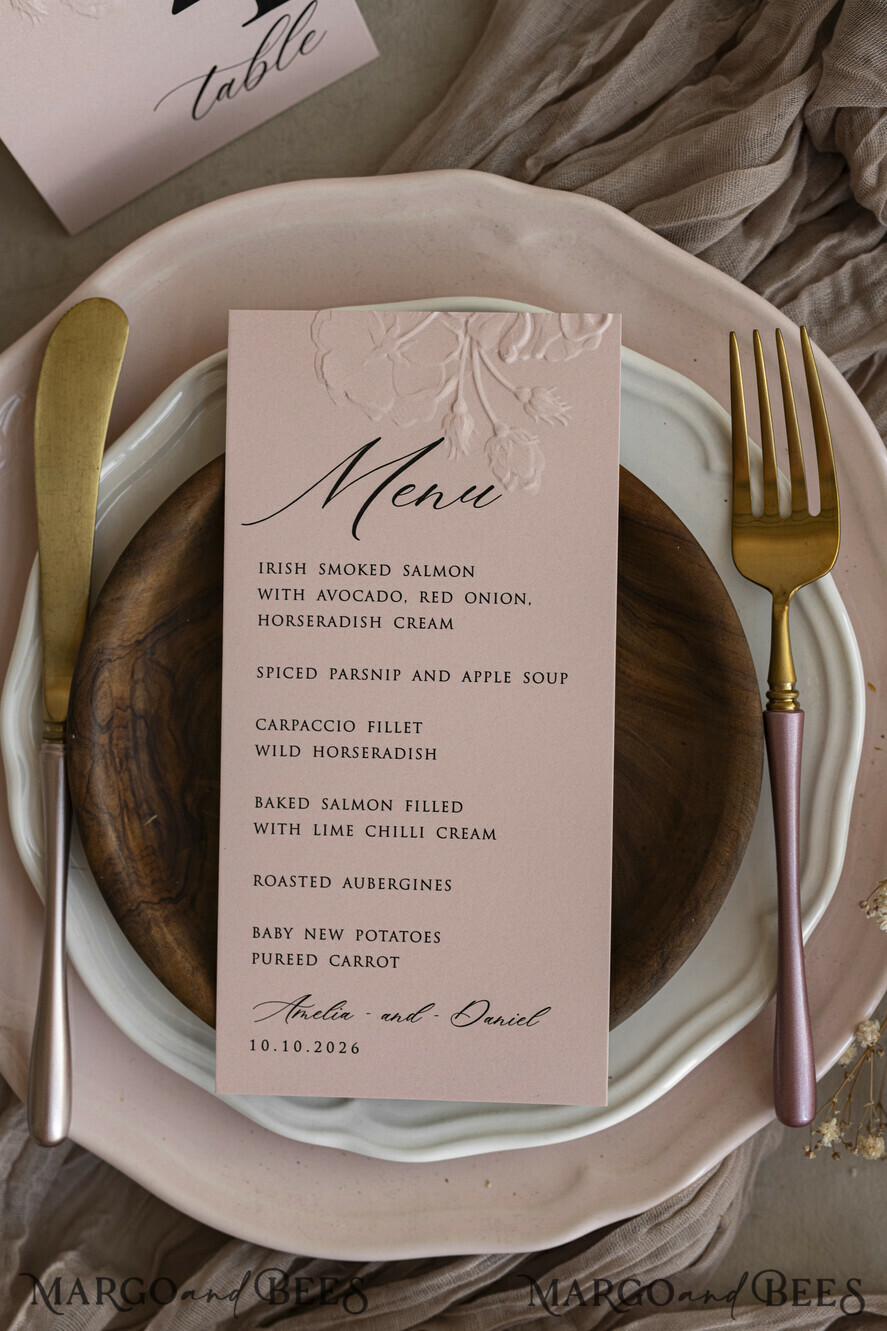 table
Menu
IRISH SMOKED SALMON
WITH AVOCADO, RED ONION,
HORSERADISH CREAM
SPICED PARSNIP AND APPLE SOUP
CARPACCIO FILLET
WILD HORSERADISH
BAKED SALMON FILLED
WITH LIME CHILLI CREAM
ROASTED AUBERGINES
BABY NEW POTATOES
PUREED CARROT
Amelia - and - Daniel
10.10.2026
MARGO and BEES MARGO and BEES